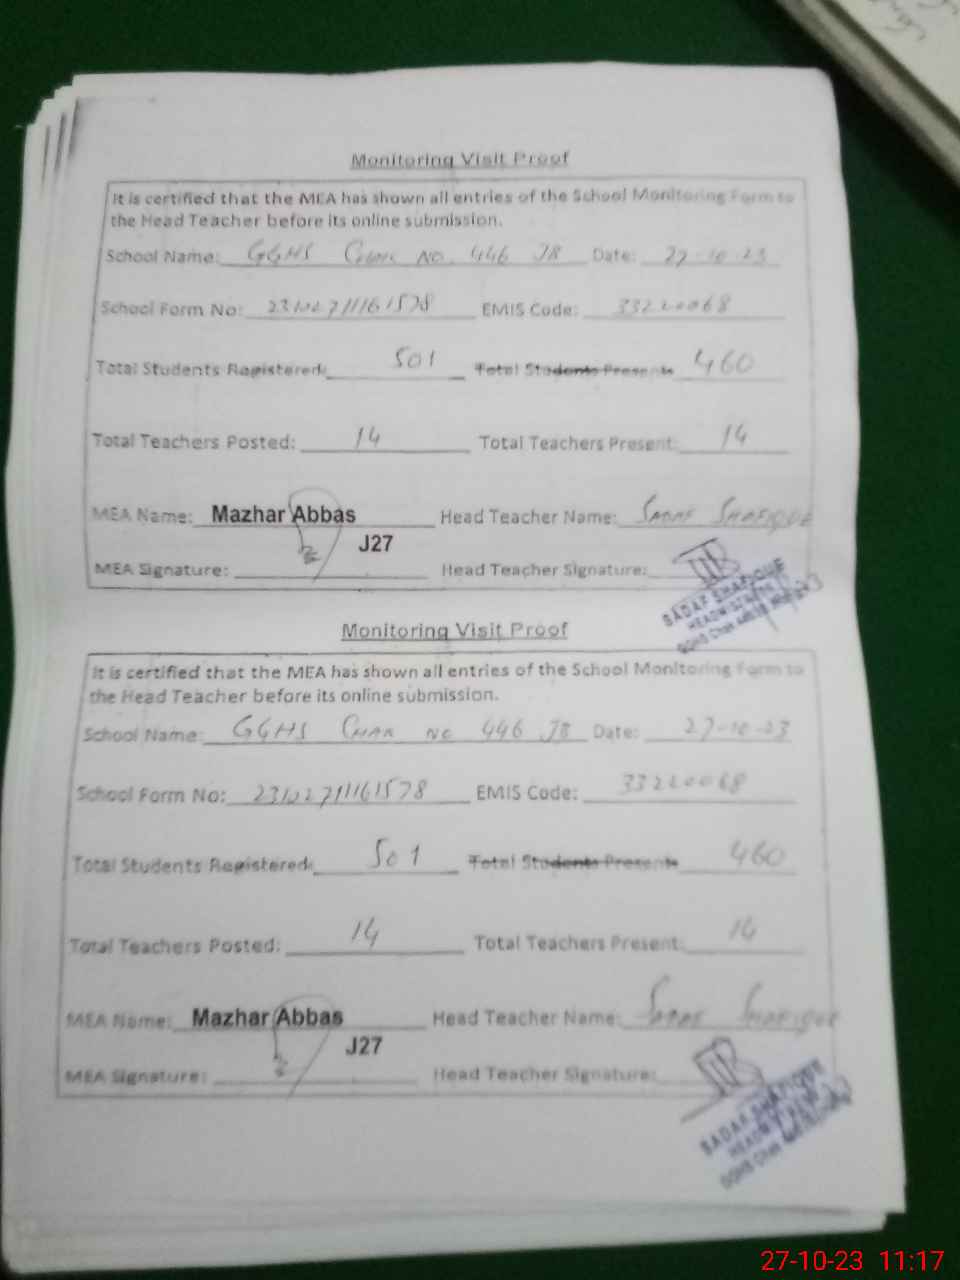 Monitoring Visit Proof
It is certified that the MEA has shown all entries of the School Monitoring Form to
the Head Teacher before its online submission.
School Name: GGHS Chak No. 446 JB Date: 27-10-23
School Form No: 231027111161578 EMIS Code: 33220068
Total Students Registered: 501 Total Students Present: 460
Total Teachers Posted: 14 Total Teachers Present: 14
MEA Name: Mazhar Abbas Head Teacher Name: SADAF SHAFIQUE
J27
MEA Signature: Head Teacher Signature:
SADAF SHAFIQUE
HEADMISTRESS
GGHS Chak
Monitoring Visit Proof
It is certified that the MEA has shown all entries of the School Monitoring Form to
the Head Teacher before its online submission.
School Name: GGHS CHAK NO 446 JB Date: 27-10-23
School Form No: 231027111161578 EMIS Code: 33220068
Total Students Registered: 501 Total Students Present: 460
Total Teachers Posted: 14 Total Teachers Present: 14
MEA Name: Mazhar Abbas Head Teacher Name: SADAF SHAFIQUE
J27
MEA Signature: Head Teacher Signature:
SADAF SHAFIQUE
HEADMISTRESS
GGHS Chak
27-10-23 11:17